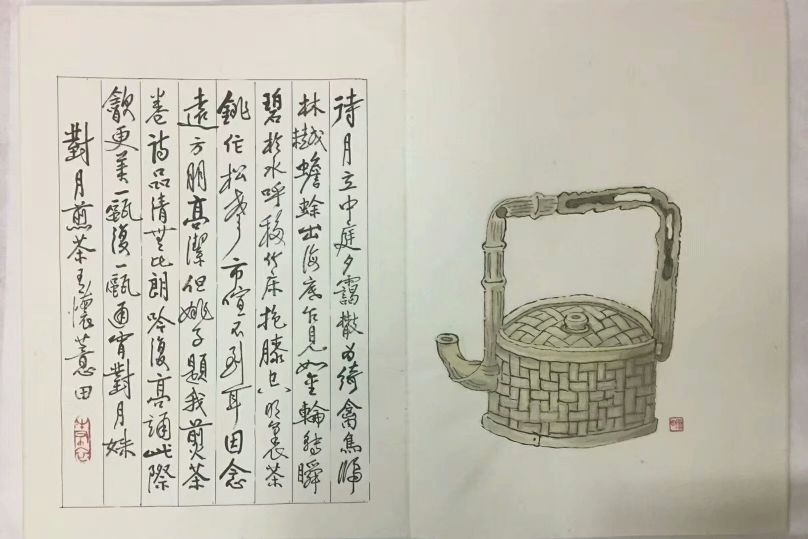 待月立中庭夕靄散為綺禽鳥歸
林樾蟾蜍出海底乍見如金輪瞬
碧於水呼移竹床抱膝茶
銚作松聲市喧不到耳因念
遠方朋高潔但姚子題我煎茶
卷詩品清無比朗吟復高誦此際
更美一甌復一甌通宵對月姊
對月煎茶有懷薏田